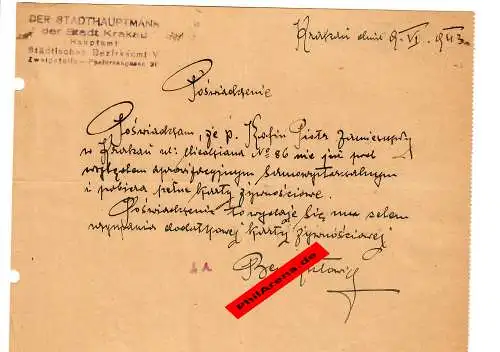 DER STADTHAUPTMANN
der Stadt Krakau
Hauptamt
Städtisches Bezirksamt V
Zweigstelle - 
Krakau dnia 9. VI. 1943
Poświadczenie
Poświadczam, że p. Kofin Piotr zamieszkały
w Krakau ul. № 86 nie jest pod
względem aprowizacyjnym samowystarczalnym
i pobiera pełne karty żywnościowe.
Poświadczenie to wydaje się na celem
dodatkowej karty żywnościowej
PhilArena.de